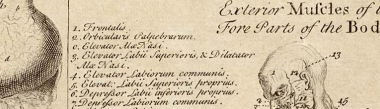 Exterior Muscles of t
Fore Parts of the Bod
1. Frontalis.
2. Orbicularis Palpebrarum.
o. Elevator Alæ Nasi.
3. Elevator Labii Superioris, & Dilatater
Alæ Nasi.
4. Elevator Labiorum communis.
5. Elevat.r Labii Superioris proprius.
6. Depressor Labii inferioris proprius.
7. Depressor Labiorum communis.
13
12